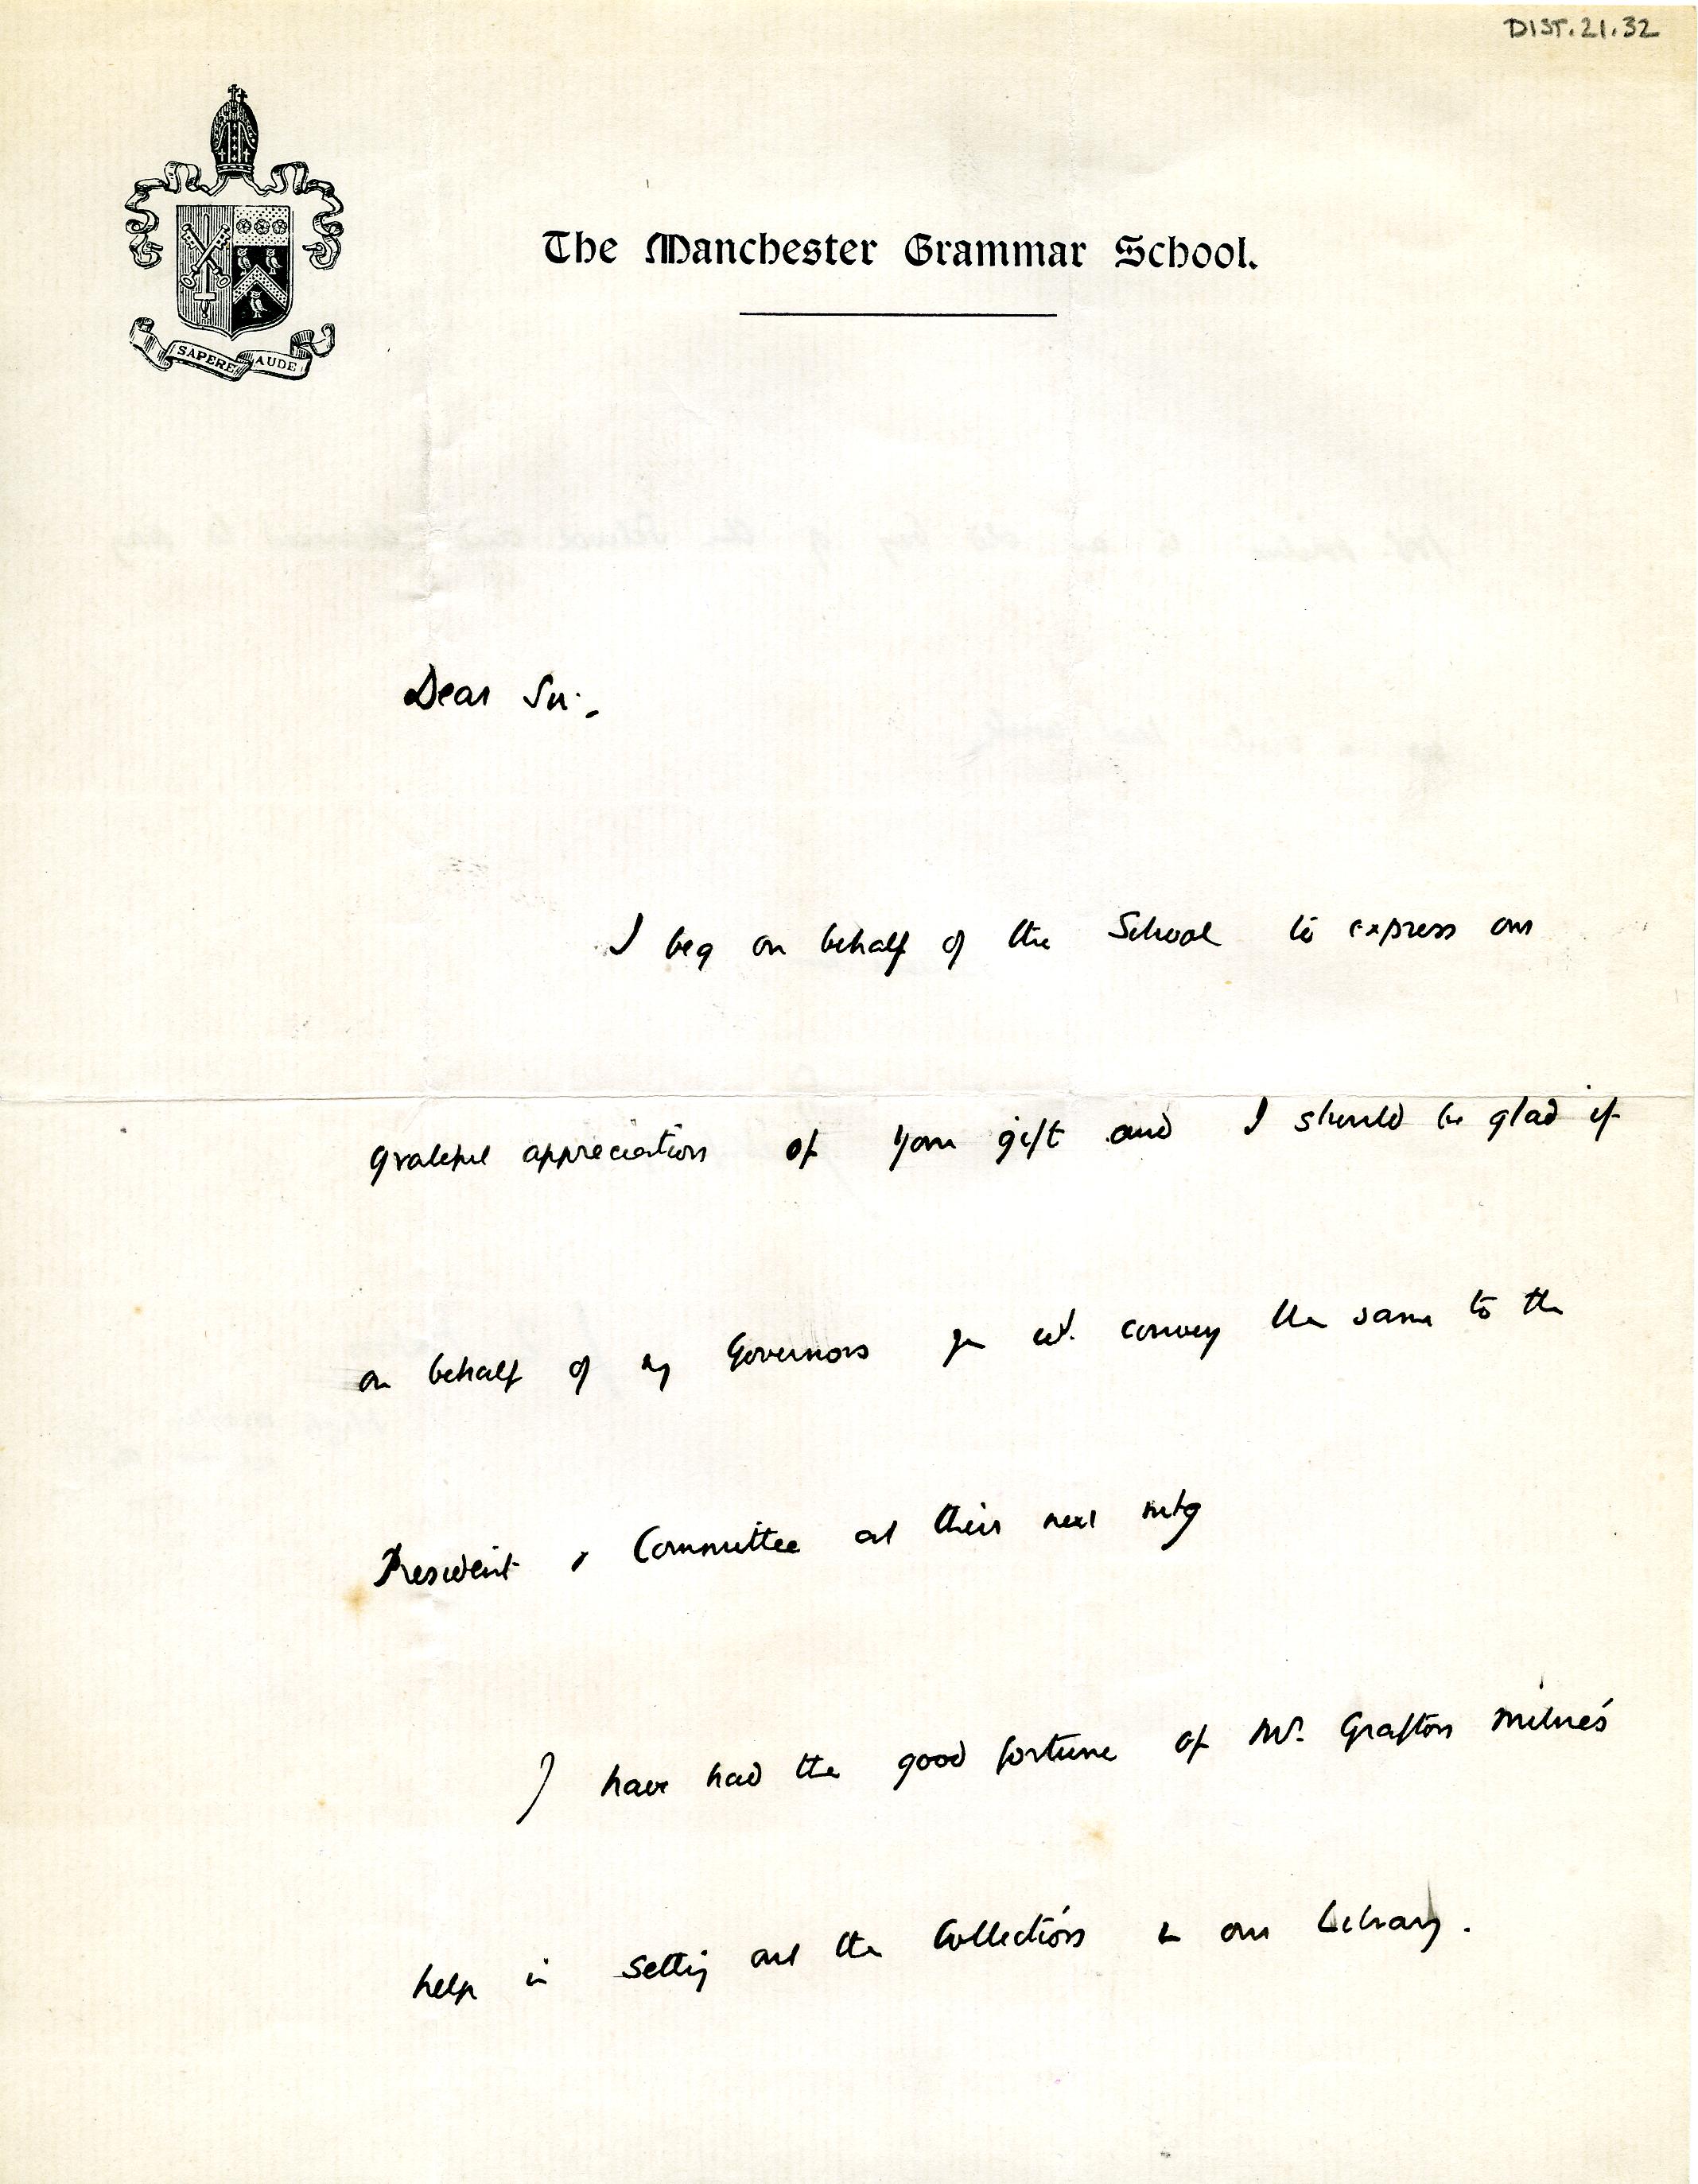 DIST.21.32
SAPERE AUDE
The Manchester Grammar School.
Dear Sir.
I beg on behalf of the School to express our
grateful appreciation of your gift and I should be glad if
on behalf of my Governors you wd. convey the same to the
President & Committee at their next mtg
I have had the good fortune of Mr. Grafton Milne's
help in setting out the Collections in our Library.